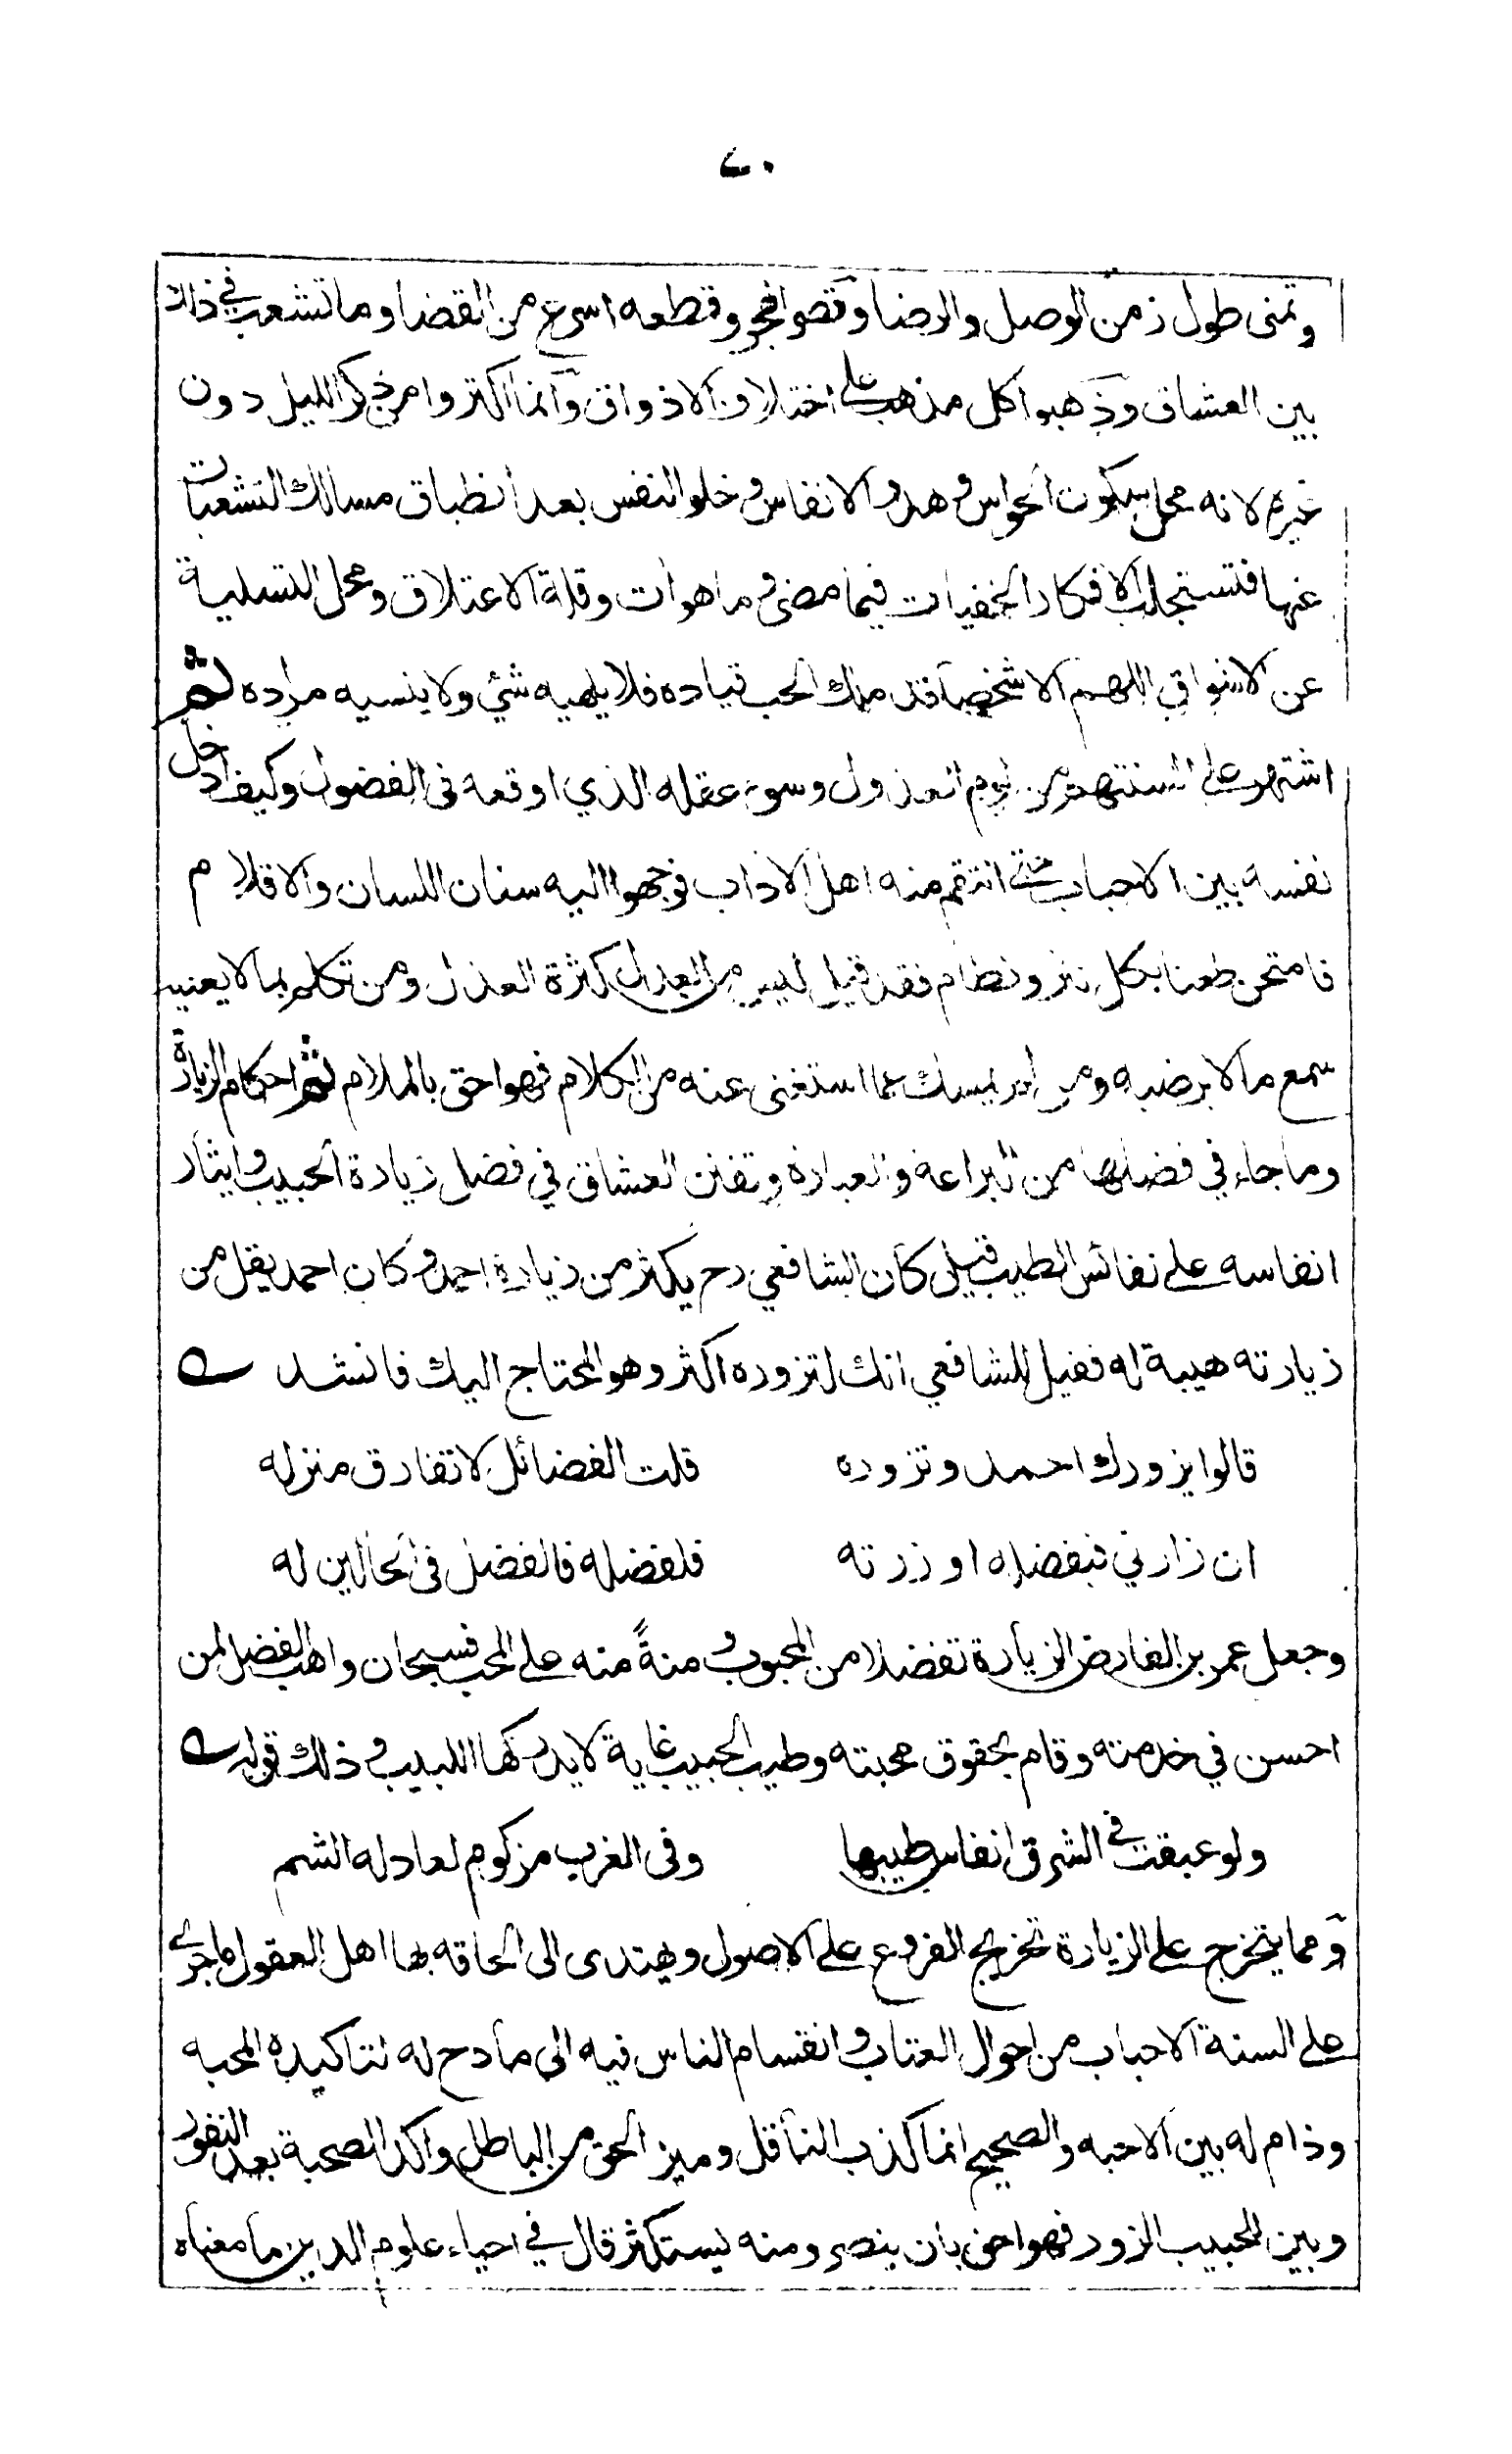 ٤٠
وتمنى طول زمن الوصل والرضا وقصر الهجر وقطعه اسرع من القضا وما تشعب في ذلك
بين العشاق وذهبوا كل مذهب على اختلاف الاذواق وانما اكثروا من ذكر الليل دون
غيره لانه محل سكون الحواس وهدو الانفاس وخلو النفس بعد انطباق مسالك التشعبات
عنها فتستجلب الافكار الخفيات فيما مضى وما هوات وقلة الاعتلاق ومحل التسلية
عن الاشواق اللهم الا شخصا قد ملك الحب قياده فلا يلهيه شئ ولا ينسيه مراده ثم
اشتهر على السنتهم من لوم العذول وسوء عقله الذي اوقعه فى الفضول وكيف ادخل
نفسه بين الاحباب حتى انتقم منه اهل الاداب فوجهوا اليه سنان اللسان والاقلام
فامتحن طعنا بكل نثر ونظام فقد قيل ليس من العدل كثرة العذل ومن تكلم بما لا يعنيه
سمع ما لا يرضيه ومن لم يمسك عما استغنى عنه من الكلام فهو احق بالملام ثم احكام الزيارة
وما جاء في فضلها من البراعة والعبارة وتفنن العشاق في فضل زيارة الحبيب وايثار
انفاسه على نفائس الطيب قيل كان الشافعي رح يكثر من زيارة احمد وكان احمد يقل من
زيارته هيبة له فقيل للشافعي انك لتزوره اكثر وهو المحتاج اليك فانشد
قالوا يزورك احمد وتزوره قلت الفضائل لا تفارق منزله
ان زارني فبفضله او زرته فلفضله فالفضل فى الحالين له
وجعل عمر بن الفارض الزيارة تفضلا من المحبوب ومنةً منه على المحب فسبحان واهب الفضل لمن
احسن في خدمته وقام بحقوق محبته وطيب الحبيب غاية لا يدركها اللبيب وذلك قوله
ولو عبقت في الشرق انفاس طيبها وفى الغرب مزكوم لعاد له الشم
ومما يتخرج على الزيارة تخريج الفروع على الاصول ويهتدى الى الحاقه بها اهل العقول ما جرى
على السنة الاحباب من احوال العتاب وانقسام الناس فيه الى مادح له لتاكيده المحبه
وذام له بين الاحبه والصحيح انما كذب الناقل وميز الحق من الباطل واكد الصحبة بعد النفور
وبين للحبيب الزور فهو احق بان ينصر ومنه يستكثر قال في احياء علوم الدين ما معناه